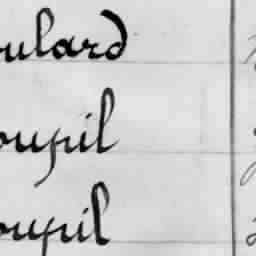 oulard
oupil
oupil